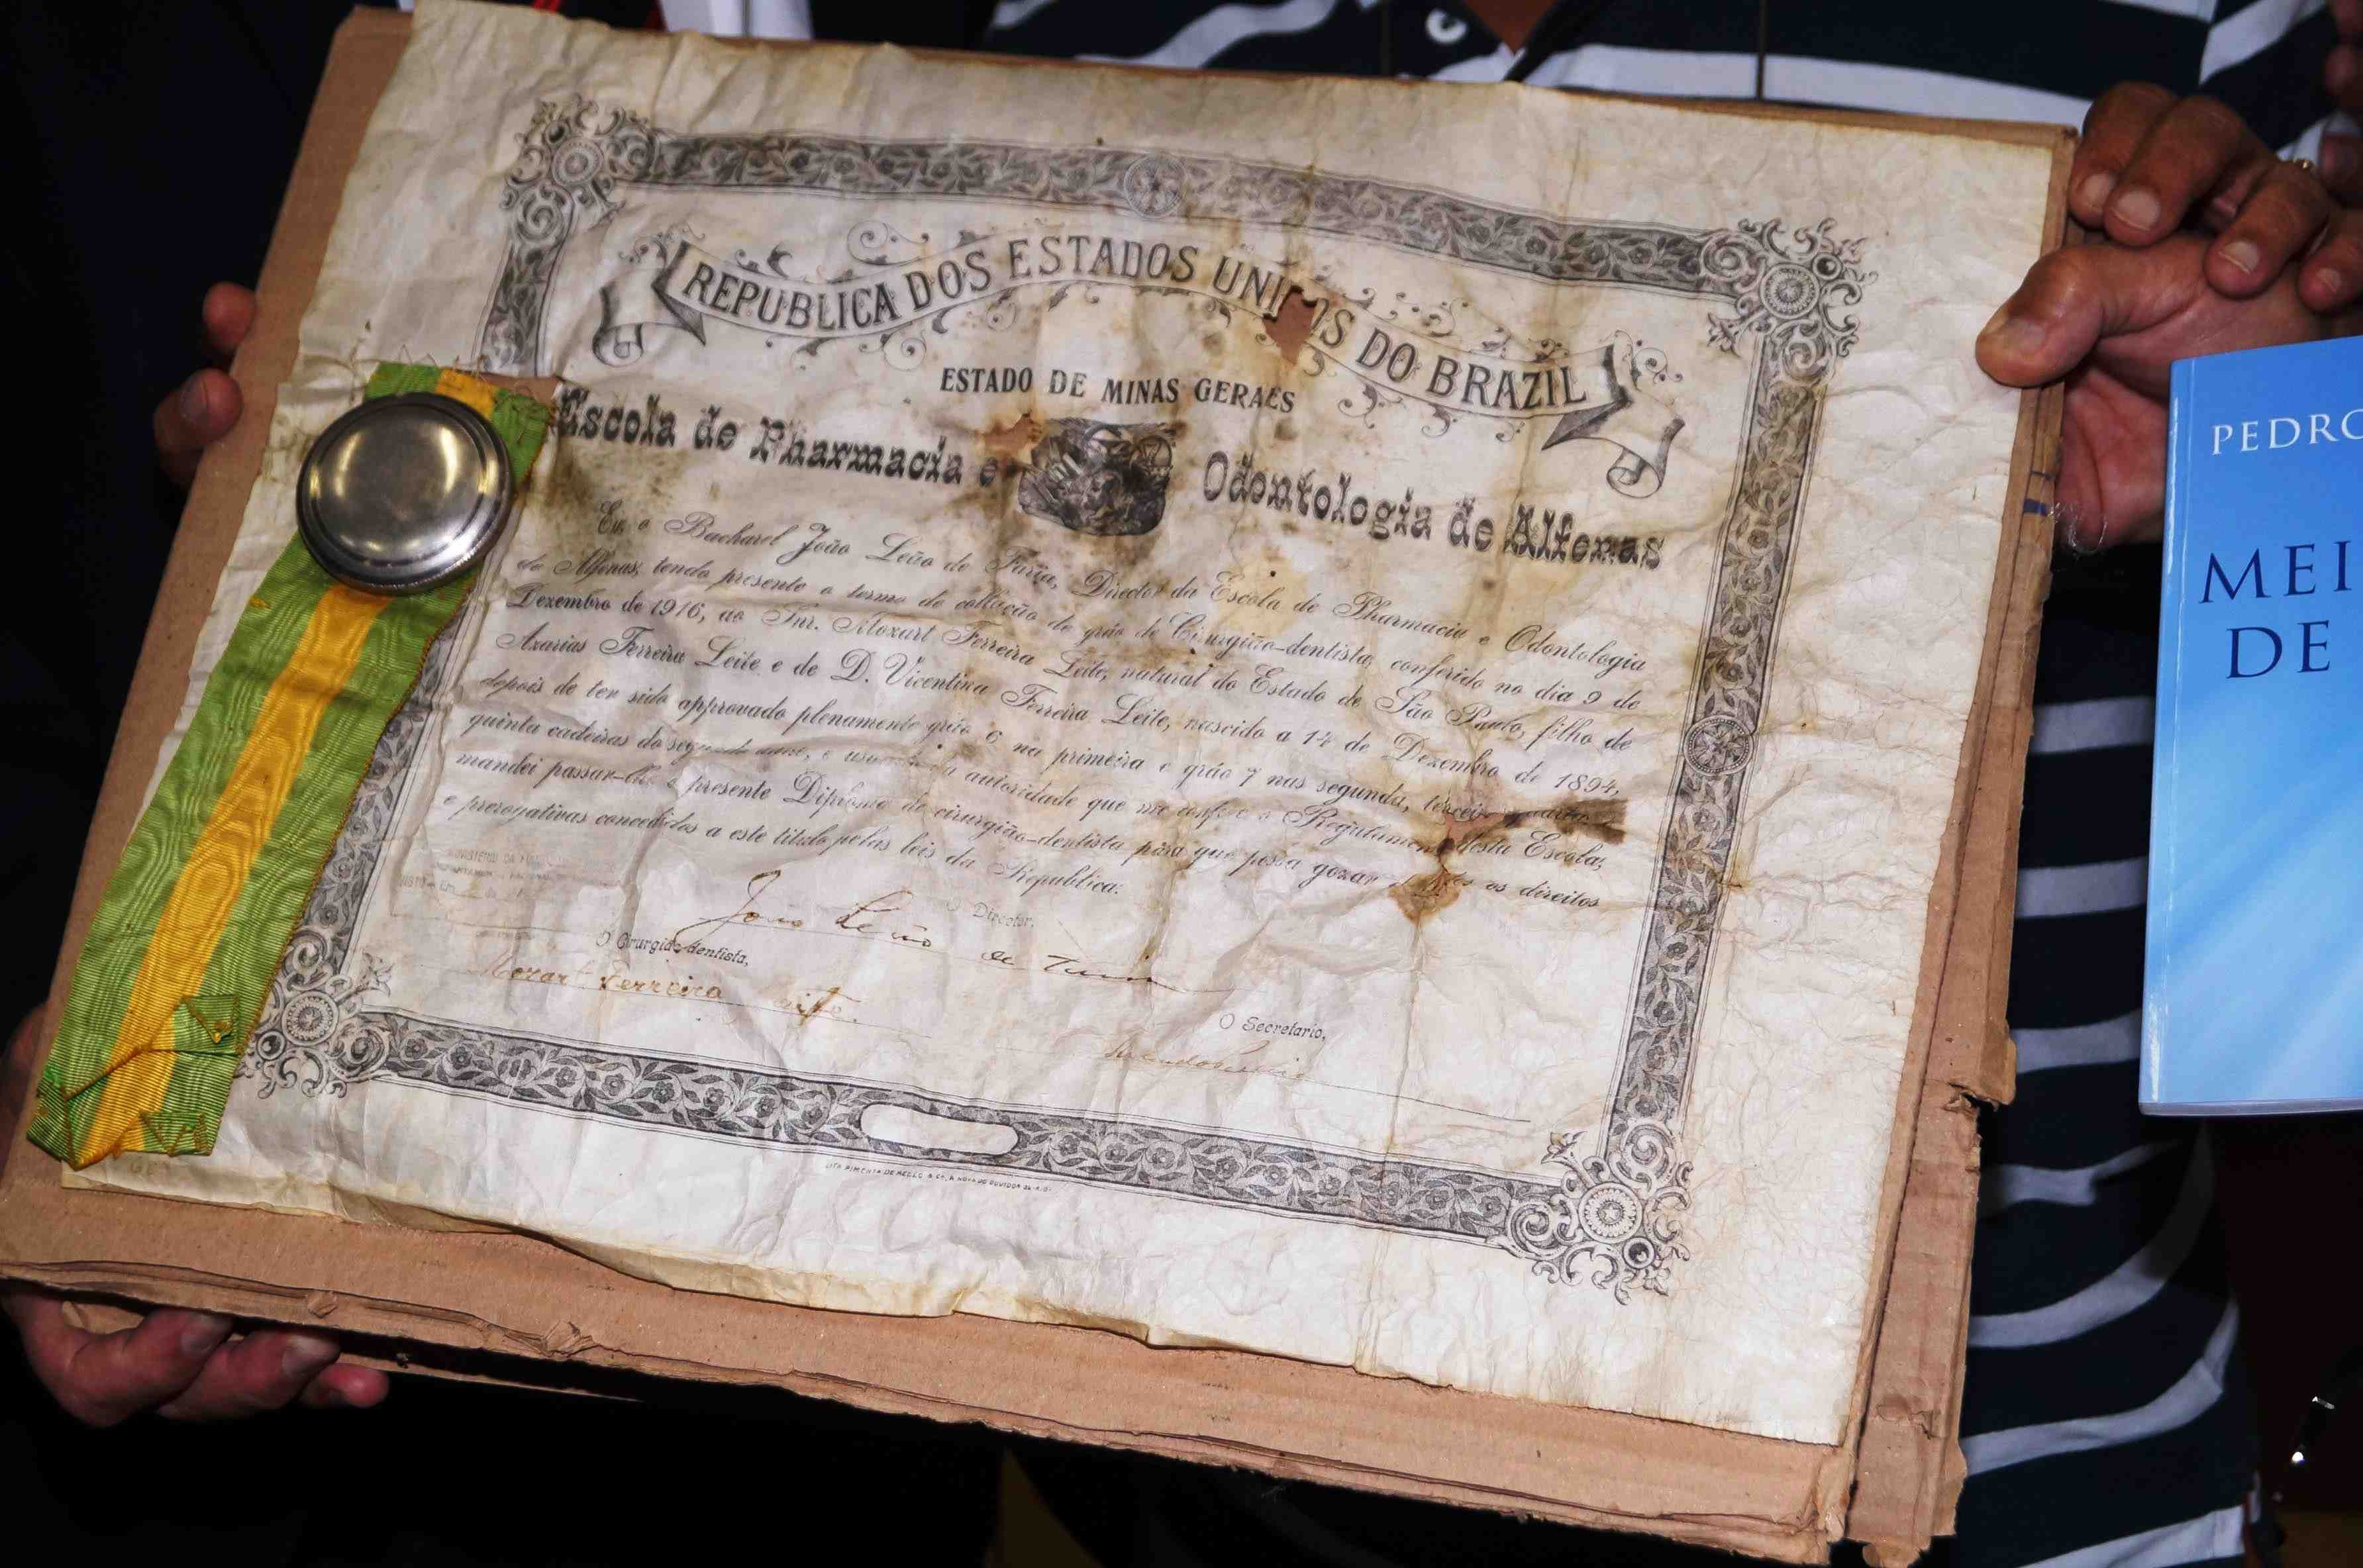 REPUBLICA DOS ESTADOS UNIDOS DO BRAZIL
ESTADO DE MINAS GERAES
Escola de Pharmacia e Odontologia de Alfenas
Eu o Bacharel João Leão de Faria, Director da Escola de Pharmacia e Odontologia
de Alfenas, tendo presente o termo de collação de gráo de Cirurgião-dentista, conferido no dia 9 de
Dezembro de 1916, ao Snr. Mozart Ferreira Leite, natural do Estado de São Paulo, filho de
Azarias Ferreira Leite e de D. Vicentina Ferreira Leite, nascido a 14 de Dezembro de 1894,
depois de ter sido approvado plenamente gráo 6 na primeira e gráo 7 nas segunda, terceira quarta
quinta cadeiras do segundo anno, e usando da autoridade que me confere o Regulamento desta Escola,
mandei passar-lhe o presente Diploma de cirurgião-dentista para que possa gozar os direitos
e prerogativas concedidos a este titulo pelas leis da Republica.
O Director,
João Leão de Faria
O Cirurgião dentista,
Mozart Ferreira Leite.
O Secretario,
PEDRO
MEI
DE